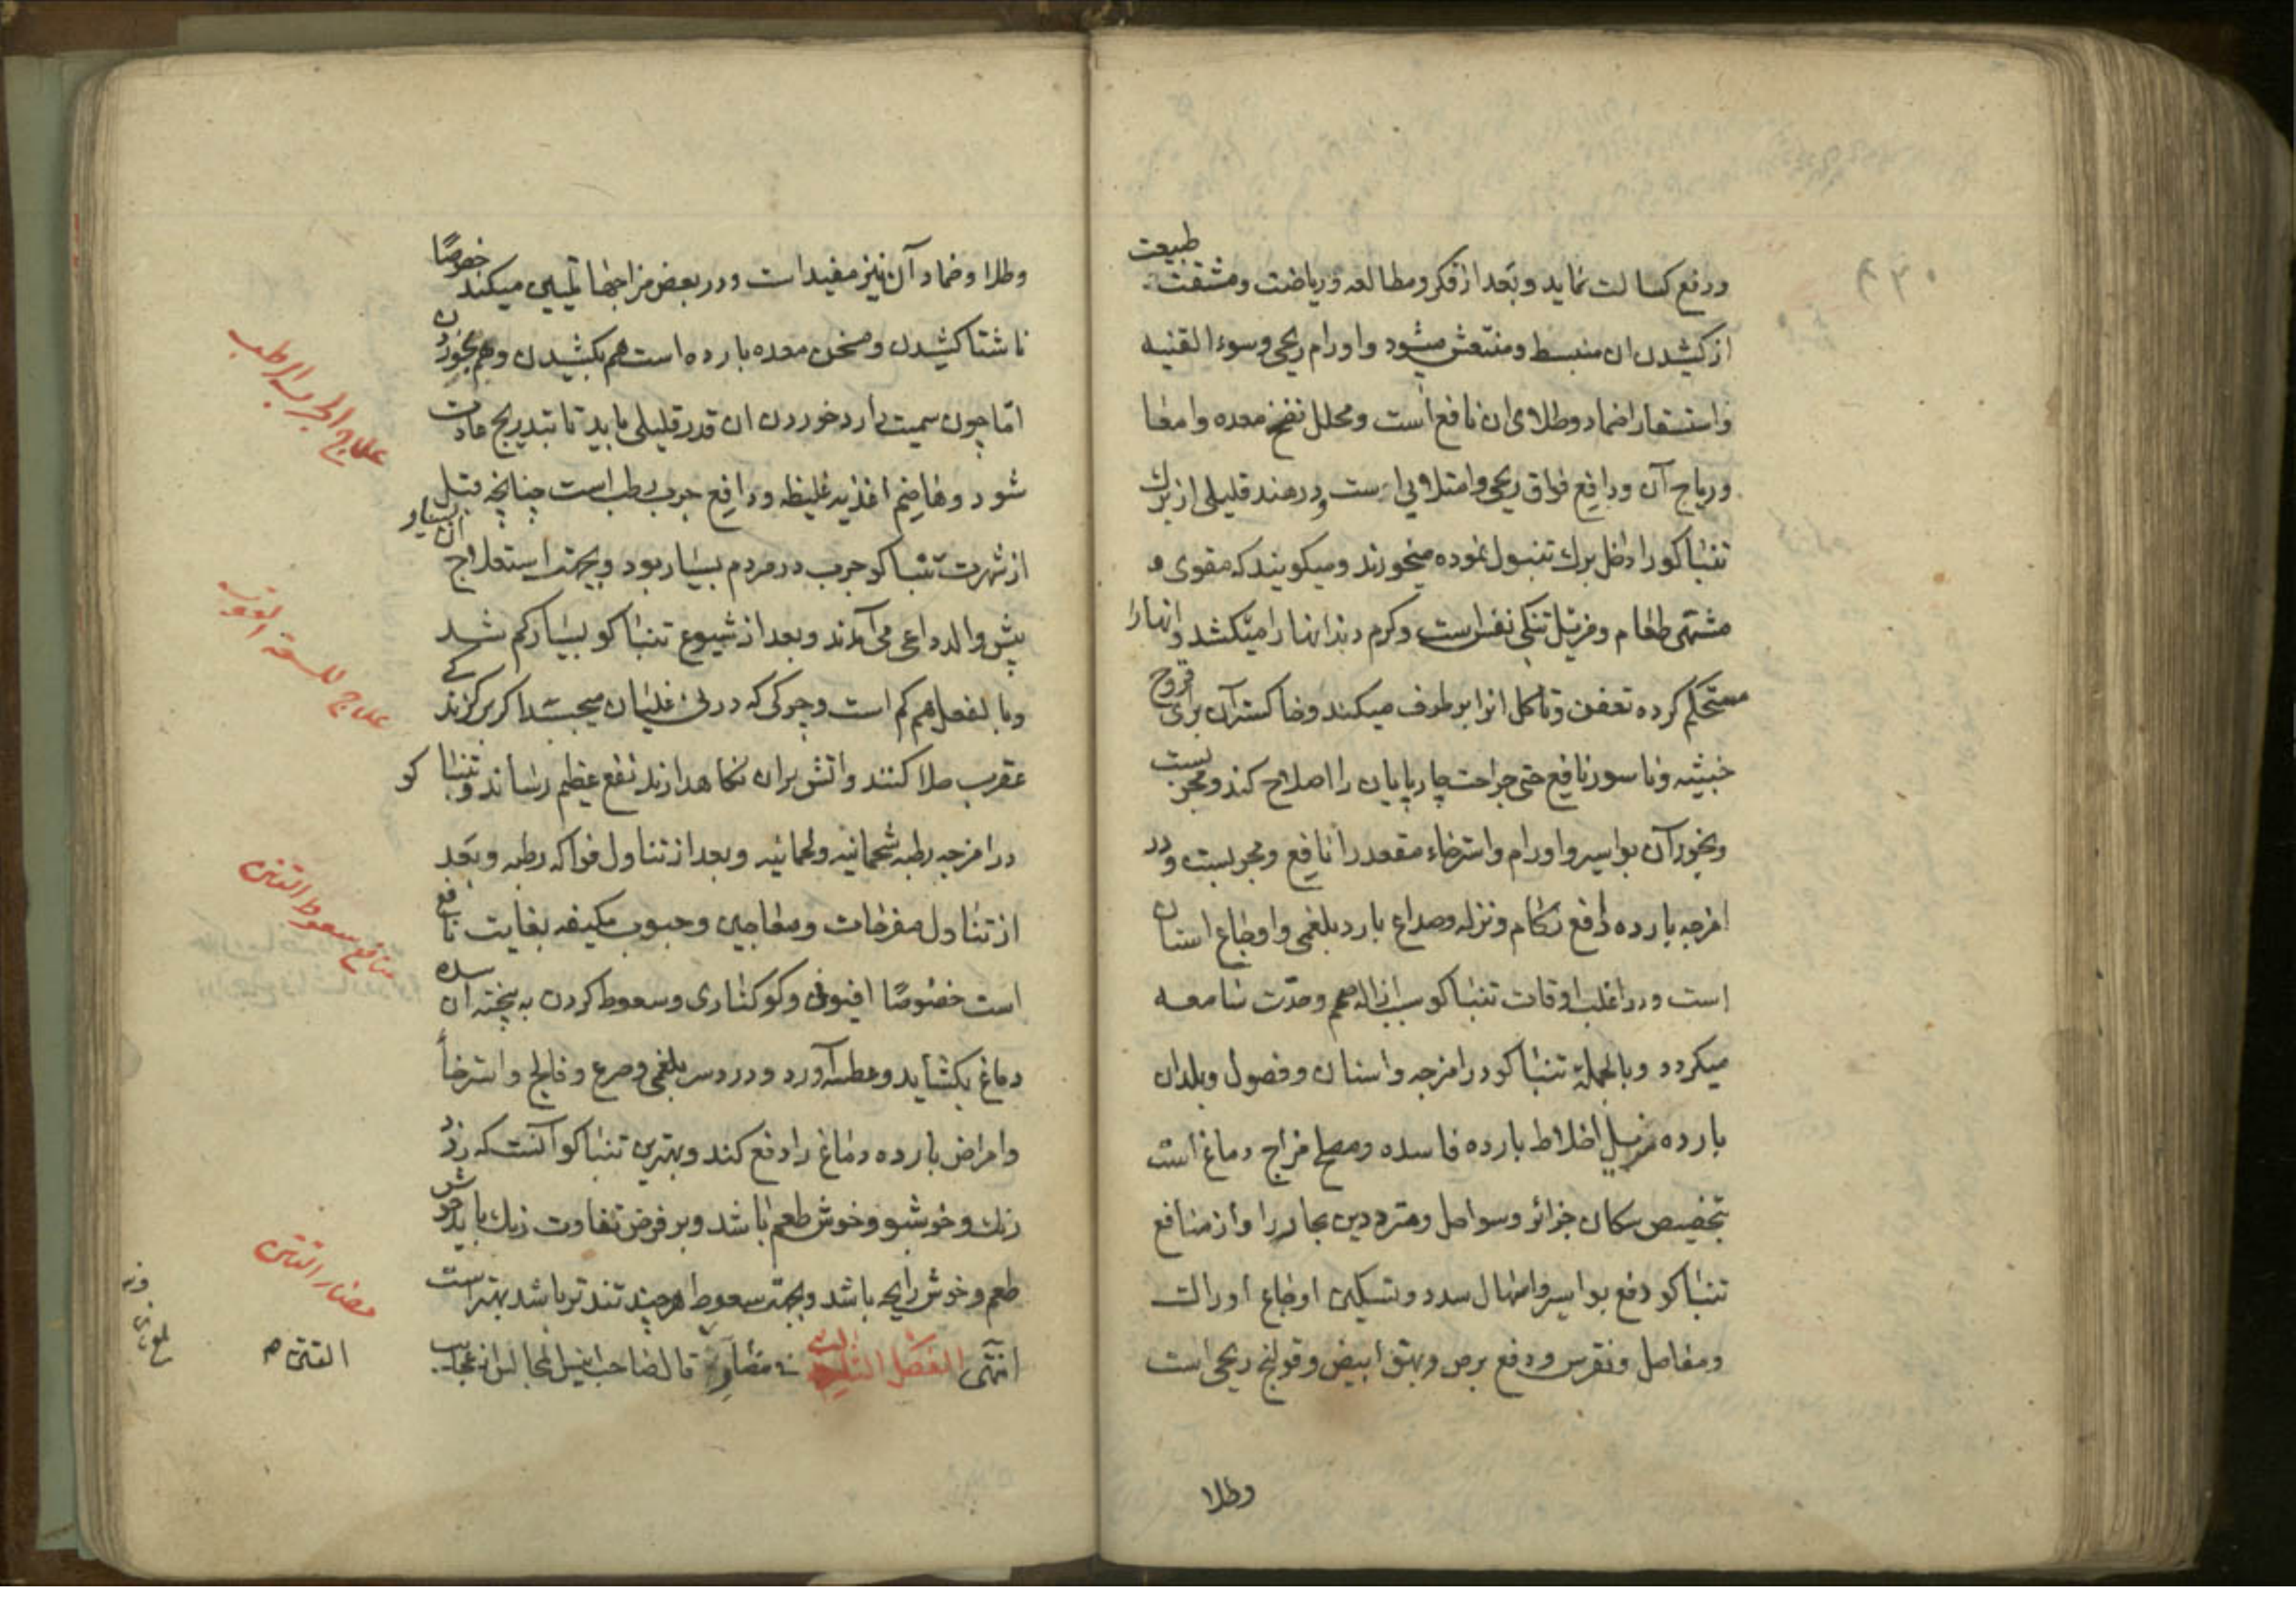 ورفع کسالت نماید و بعد از فکر و مطالعه و ریاضت و مشقت طبیعت
از کشیدن ان منبسط و منتعش میشود و اورام ریحی و سوء القنیه
و استسقا را ضماد و طلای ان نافع است و محلل نفخ معده و امعا
و ریاح آن و دافع فواق ریحی و امتلایی است و در هند قلیلی از برك
تنباکو را داخل برك تنبول نموده میخورند و میکویند که مقوی و
مشتهی طعام و مزیل تنکی نفس است و کرم دندانها را میکشد و انها را
مستحکم کرده تعفن و تاکل انرا برطرف میکند و خاکستر آن برای قروح
خبیثه و ناسور نافع حتی جراحت چارپایان را اصلاح کند و مجربست
و بخور آن بواسیر و اورام و استرخاء مقعد را نافع و مجربست و در
امزجه بارده دافع زکام و نزله و صداع بارد بلغمی و اوجاع اسنان
است و در اغلب اوقات تنباکو سبب ازاله صمم وحدّت سامعه
میکردد و بالجملة تنباکو در امزجه و اسنان و فصول و بلدان
بارده مزیل اخلاط بارده فاسده و مصلح مزاج دماغ است
بتخصیص سکان جزائر و سواحل و مترددین بحار را و از منافع
تنباکو دفع بواسیر و اسهال سدد و تسکین اوجاع اوراك
و مفاصل و نقرس و دفع برص و بهق ابیض و قولنج ریحی است
وطلا
وطلا و ضماد آن نیز مفید است و در بعض مزاجها تلیین میکند خصوصًا
ناشتا کشیدن و مسخن معده بارده است هم بکشیدن و هم بخوردن
امّا چون سمیت دارد خوردن ان قدر قلیلی باید تا بتدریج عادت
شود و هاضم اغذیه غلیظه و دافع جرب رطب است چنانچه قبل
از شهرت تنباکو جرب در مردم بسیار بود و بجهت استعلاج آن بسیار
پیش والد داعی می آمدند و بعد از شیوع تنباکو بسیار کم شد
و بالفعل هم کم است و چرکی که در نی غلیان میچسبد اکر بر کزندکی
عقرب طلا کنند و اتش بران نکاهدارند نفع عظیم رساند و تنباکو
در امزجه رطبه شحمانیه و لحمانیه و بعد از تناول فواکه رطبه و بعد
از تناول مفرحات و معاجین و حبوب مکیفه بغایت نافع
است خصوصًا افیونی و کوکناری و سعوط کردن به پخته آن سده
دماغ بکشاید و عطسه آورد و دردسر بلغمی و صرع و فالج و استرخا
و امراض بارده دماغ را دفع کند و بهترین تنباکو آنست که زرد
رنك و خوشبو و خوش طعم باشد و بر فرض تفاوت رنك باید خوش
طعم و خوش رایحه باشد و بجهت سعوط هر چند تندتر باشد بهتر است
انتهی الفصل الثالث فی مضاره قال صاحب انیس المجالس
علاج الجرب الرطب
علاج للسعة العقرب
منافع سعوط التتن
مضار التتن
التتن م